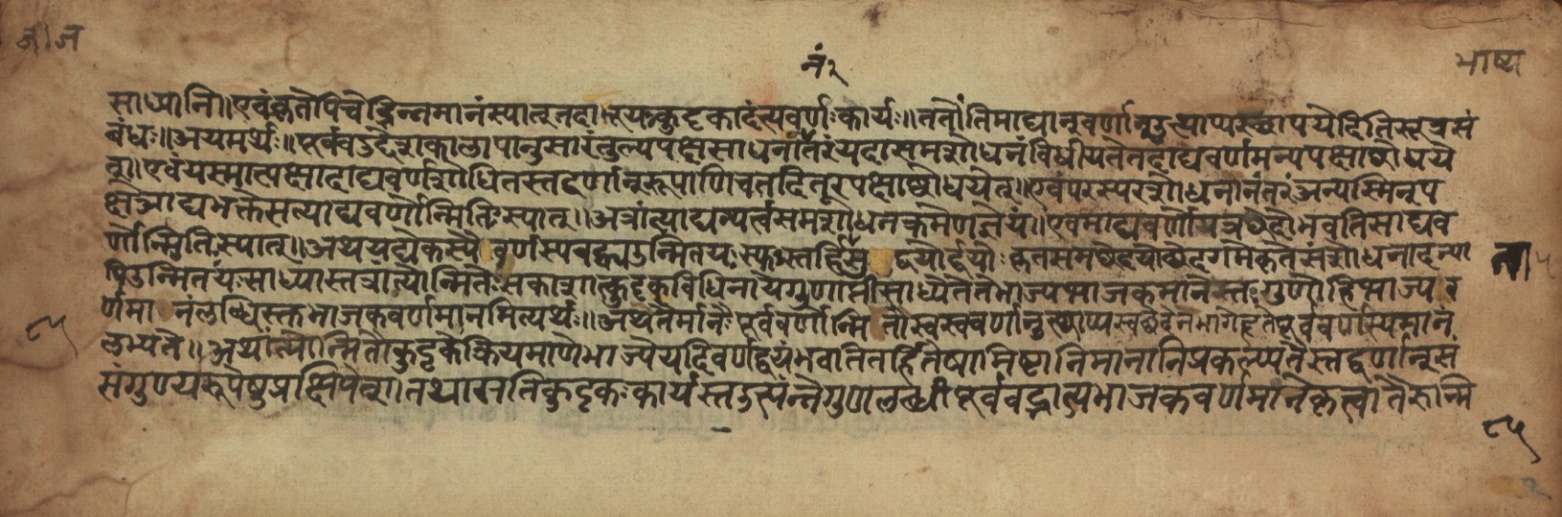 नं२
भाष्य
साध्यानि॥एवंकृतेपिचेद्भिन्नमानंस्यात्नतदा कुट्टकादंत्यवर्णःकार्यः॥ततोंतिमाद्यानुवर्णा दितिसूत्रसं
बंधः॥अयमर्थः॥पूर्ववऽद्देशकालापानुसारंतुल्यपक्षसाधनांतरंयदासमशोधनंविधीयतेतदाद्यवर्णमन्यपक्षाछोधये
त्॥एवंयस्मात्पक्षादाद्यवर्णशोधितस्तद्वर्णानुरूपाणिचतदितरपक्षाछोधयेत्॥एवंपरस्परशोधनानंतरंअन्यस्मिन्प
क्षेआद्यभक्तेसत्याद्यवर्णोन्मितिःस्यात्॥अत्रांत्याद्य समशोधनक्रमेणज्ञेयं॥एवमाद्यवर्णो भवतिसाद्यव
र्णोन्मितिःस्यात्॥अथयद्येकस्यै वर्णस्यबह्व्योऽन्मितयःस्युस्तर्हि द्वयोर्द्वयोः कृतसमछेदयो छेदगमेकृतेसंशोधनादन्या
पिऽन्मितयःसाध्यास्तत्रांत्योन्मितेःसकाशात्कुट्टकविधिनायेगुणाप्तीसाध्येतेतेभाज्यभाजकमानेस्तःगुणोहिभाज्यव
र्णमा नंलब्धिस्तुभाजकवर्णमानमित्यर्थः॥अथतेर्मानैःपूर्ववर्णोन्मि तौस्वस्ववर्णानुत्थाप्यस्वछेदेनभागेहृतेपूर्ववर्णस्यमानं
लभ्यते॥अथांत्योन्मितौकुट्टकेक्रियमाणेभाज्येयदिवर्णद्वयंभवतितर्हितेषामिष्टानिमानानिप्रकल्प्यतैस्तद्वर्णान्सं
संगुण्यरूपेषुप्रक्षिपेत्॥तथासतिकुट्टकःकार्यस्तऽत्पन्नेगुणलब्धीपूर्ववद्भाज्यभाजकवर्णमानेकृत्वातैरुन्मि
८५
८५